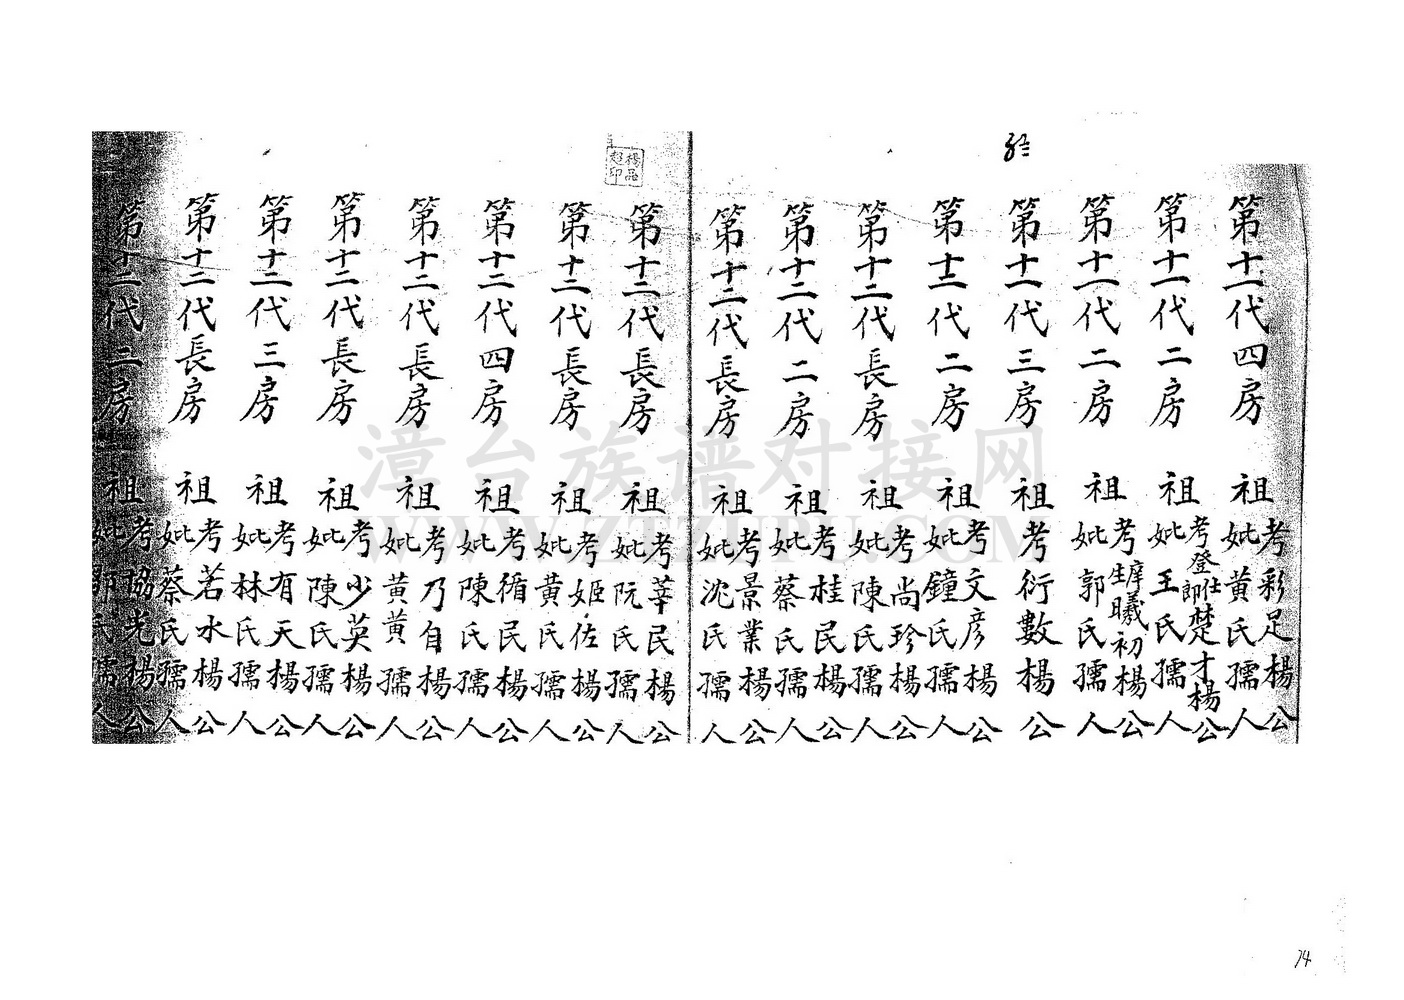 第十一代四房 祖考彩足楊公
妣黃氏孺人
第十一代二房 祖考登仕郎楚才楊公
妣王氏孺人
第十一代二房 祖考庠生曦初楊公
妣郭氏孺人
第十一代三房 祖考衍數楊公
第十二代二房 祖考文彦楊公
妣鐘氏孺人
第十二代長房 祖考尚珍楊公
妣陳氏孺人
第十二代二房 祖考桂民楊公
妣蔡氏孺人
第十二代長房 祖考景業楊公
妣沈氏孺人
第十二代長房 祖考莘民楊公
妣阮氏孺人
第十二代長房 祖考姬佐楊公
妣黃氏孺人
第十二代四房 祖考循民楊公
妣陳氏孺人
第十二代長房 祖考乃自楊公
妣黃黃孺人
第十二代長房 祖考少英楊公
妣陳氏孺人
第十二代三房 祖考有天楊公
妣林氏孺人
第十二代長房 祖考若水楊公
妣蔡氏孺人
第十二代二房 祖考協光楊公
妣氏孺人
楊品超印
漳台族谱对接网
WWW.ZTZUPU.COM
74